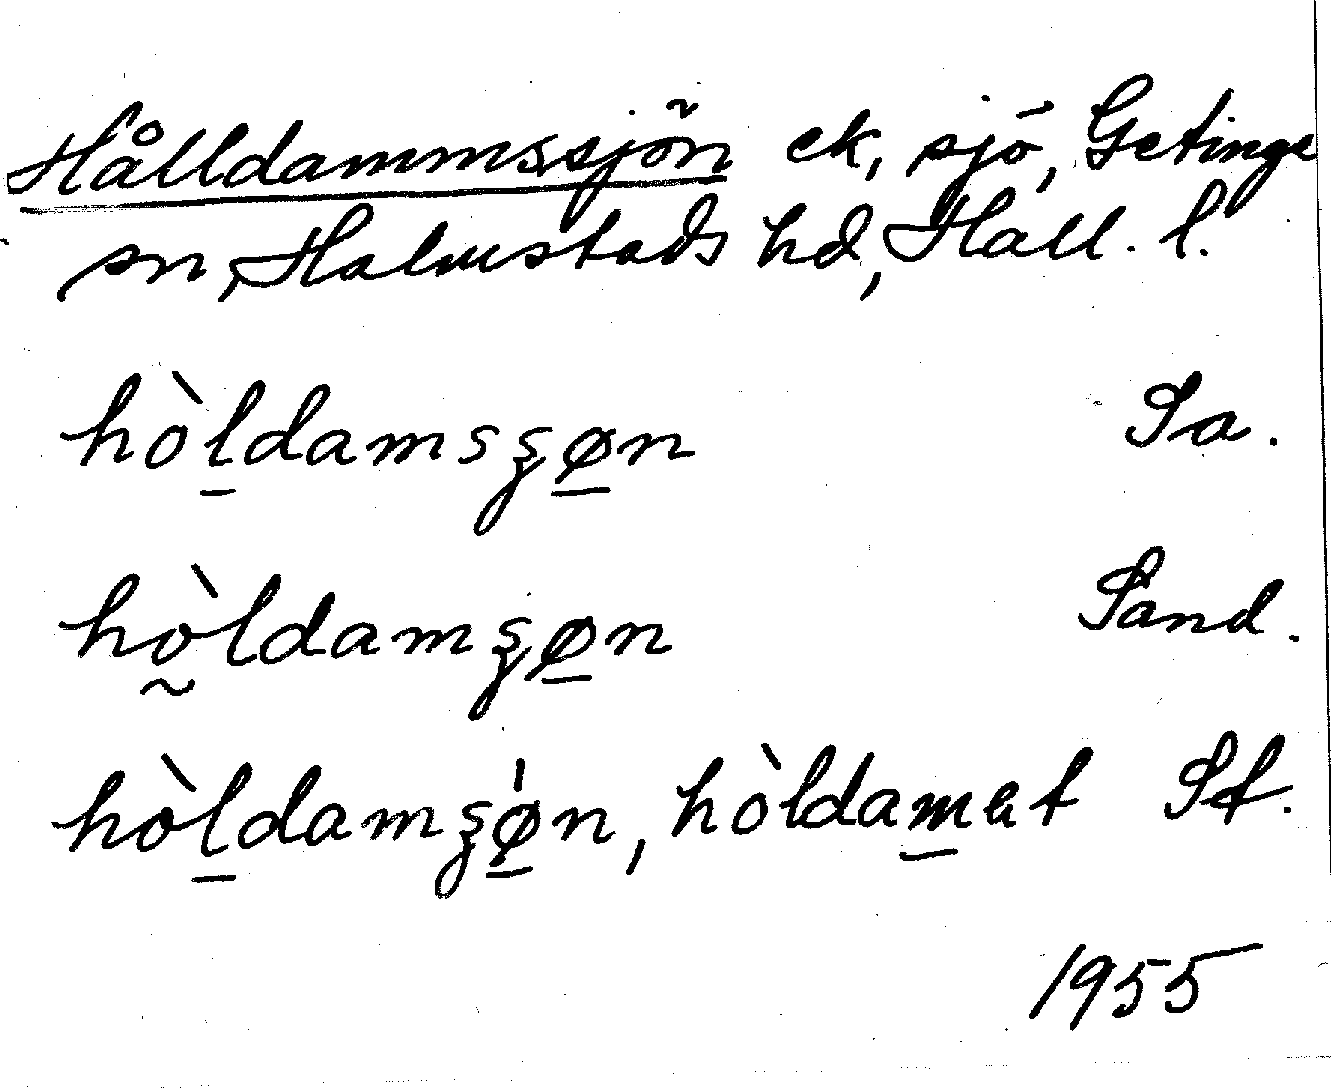 Hålldammssjön ek, sjö, Getinge
sn, Halmstads hd, Hall. l.
hòl̲damsʂø̲n Sa.
hò̰ldamʂø̲n Sand.
hòl̲damʂø̲̍n, hòldam̲ət St.
1955